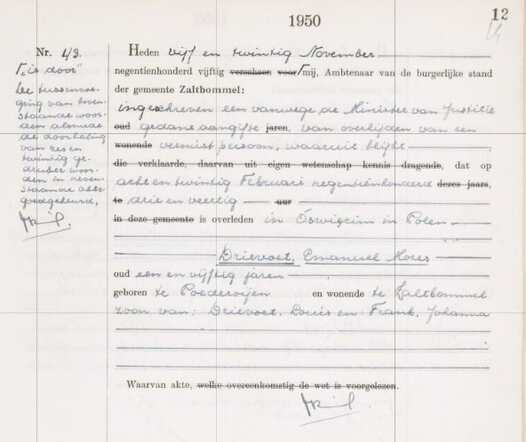 1950
12
Nr. 43.
Heden vijf en twintig November
negentienhonderd vijftig verscheen voor mij, Ambtenaar van de burgerlijke stand
der gemeente Zaltbommel:
ingeschreven een vanwege de Minister van Justitie
oud gedane aangifte jaren, van overlijden van een
wonende vermist persoon, waaruit blijkt
die verklaarde, daarvan uit eigen wetenschap kennis dragende, dat op
acht en twintig Februari negentienhonderd deze jaars,
te drie en veertig uur
in deze gemeente is overleden in Oswiecim in Polen
Drievoet, Emanuel Mozes
oud een en vijftig jaren
geboren te Poederoijen en wonende te Zaltbommel
zoon van: Drievoet, Louis en Frank, Johanna
Waarvan akte, welke overeenkomstig de wet is voorgelezen.
"is door"
De tussenvoe-
ging van boven-
staande woor-
den alsmede
de doorhaling
van zes en
twintig ge-
drukte woor-
den in neven-
staande akte
goedgekeurd.